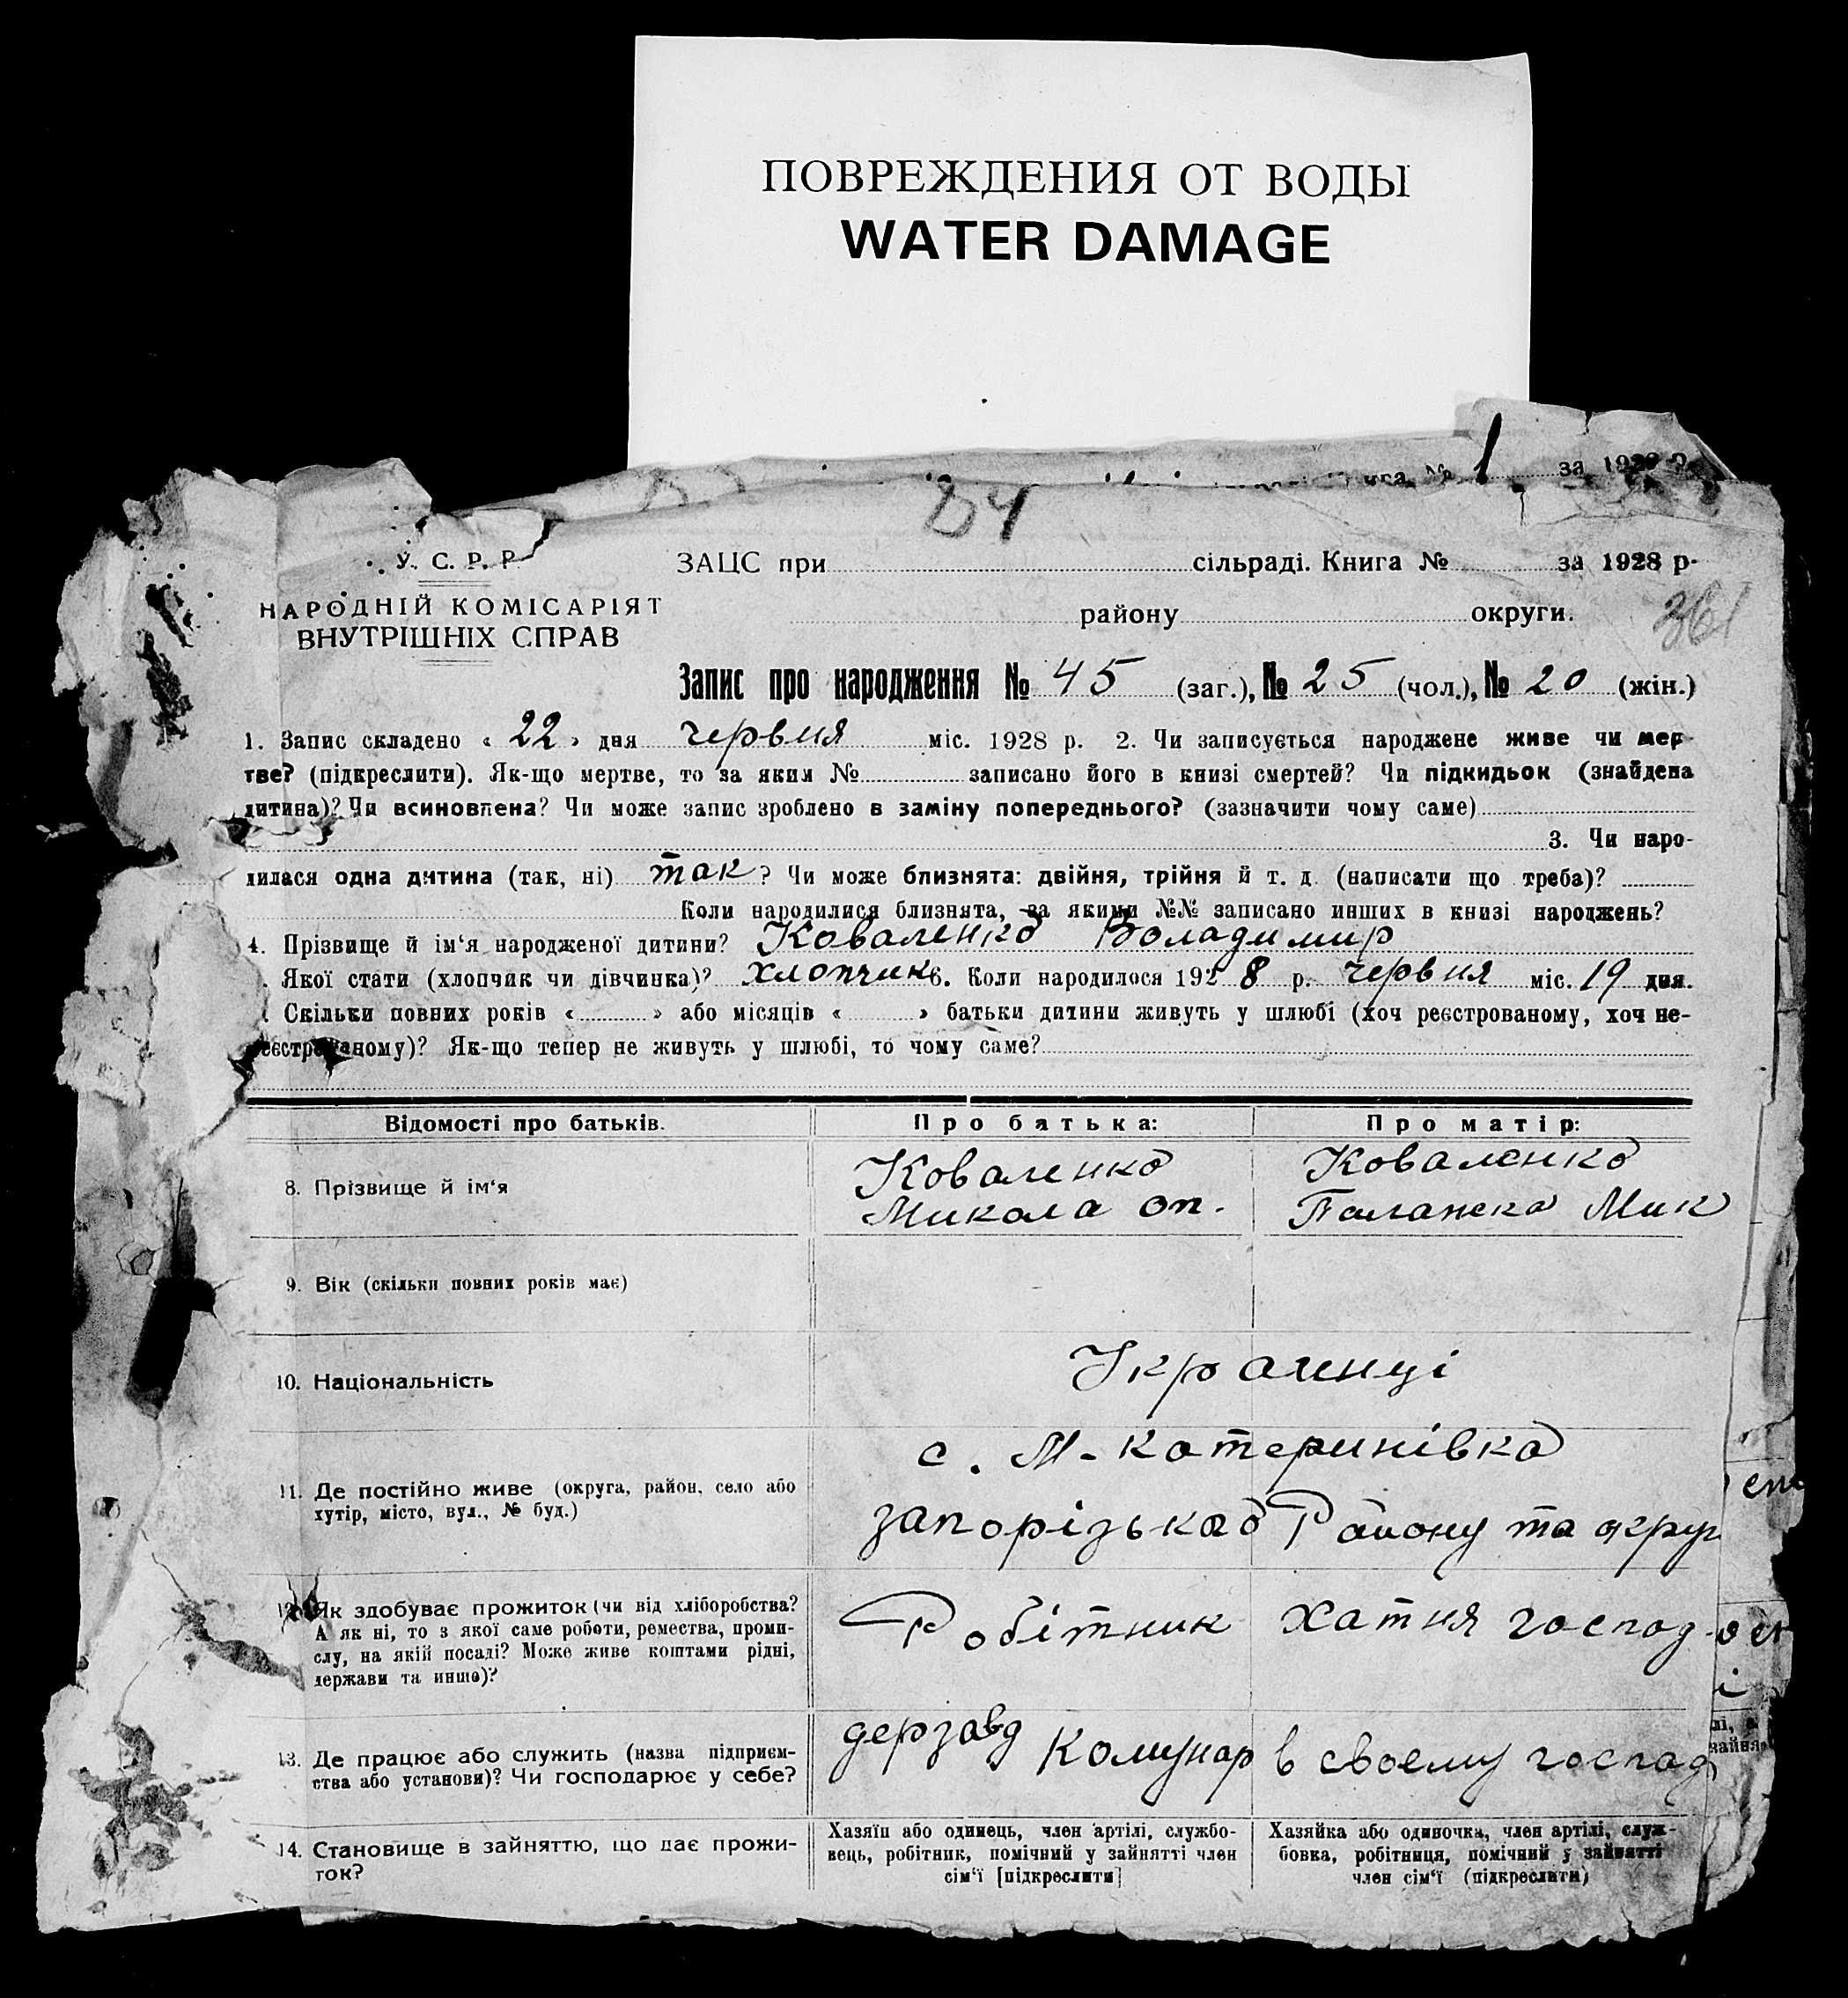 ПОВРЕЖДЕНИЯ ОТ ВОДЫ
WATER DAMAGE
№ 1 за 1928 р.
У. С. Р. Р.
ЗАЦС при сільраді. Книга № за 1928 р.
НАРОДНІЙ КОМІСАРІЯТ
району округи.
361
ВНУТРІШНІХ СПРАВ
Запис про народження № 45 (заг.), № 25 (чол.), № 20 (жін.)
1. Запис складено « 22 » дня червня міс. 1928 р. 2. Чи записується народжене живе чи мер-
тве? (підкреслити). Як-що мертве, то за яким № записано його в книзі смертей? Чи підкидьок (знайдена
дитина)? Чи всиновлена? Чи може запис зроблено в заміну попереднього? (зазначити чому саме)
3. Чи наро-
дилася одна дитина (так, ні) так ? Чи може близнята: двійня, трійня й т. д. (написати що треба)?
Коли народилися близнята, за якими №№ записано инших в книзі народжень?
4. Прізвище й ім‘я народженої дитини? Коваленко Володимир
Якої стати (хлопчик чи дівчинка)? хлопчик 6. Коли народилося 1928 р. червня міс. 19 дня.
Скільки повних років « » або місяців « » батьки дитини живуть у шлюбі (хоч реєстрованому, хоч не-
реєстрованому)? Як-що тепер не живуть у шлюбі, то чому саме?
Відомості про батьків. Про батька: Про матір:
8. Прізвище й ім‘я
Коваленко Коваленко
Микола оп. Мик
9. Вік (скільки повних років має)
10. Національність Украинці
11. Де постійно живе (округа, район, село або
хутір, місто, вул., № буд.)
с. М-Катеринівка
запорізького Району та округ
12. Як здобуває прожиток (чи від хліборобства?
А як ні, то з якої саме роботи, ремества, проми-
слу, на якій посаді? Може живе коштами рідні,
держави та инше)?
Робітник хатня господ
13. Де працює або служить (назва підприєм-
ства або установи)? Чи господарює у себе?
держзавд Комунар в своему господ
14. Становище в зайняттю, що дає прожи-
ток?
Хазяїн або одинець, член артілі, службо-
вець, робітник, помічний у зайнятті член
сім‘ї [підкреслити]
Хазяйка або одиночка, член артілі, служ-
бовка, робітниця, помічний у зайнятті
член сім‘ї (підкреслити)